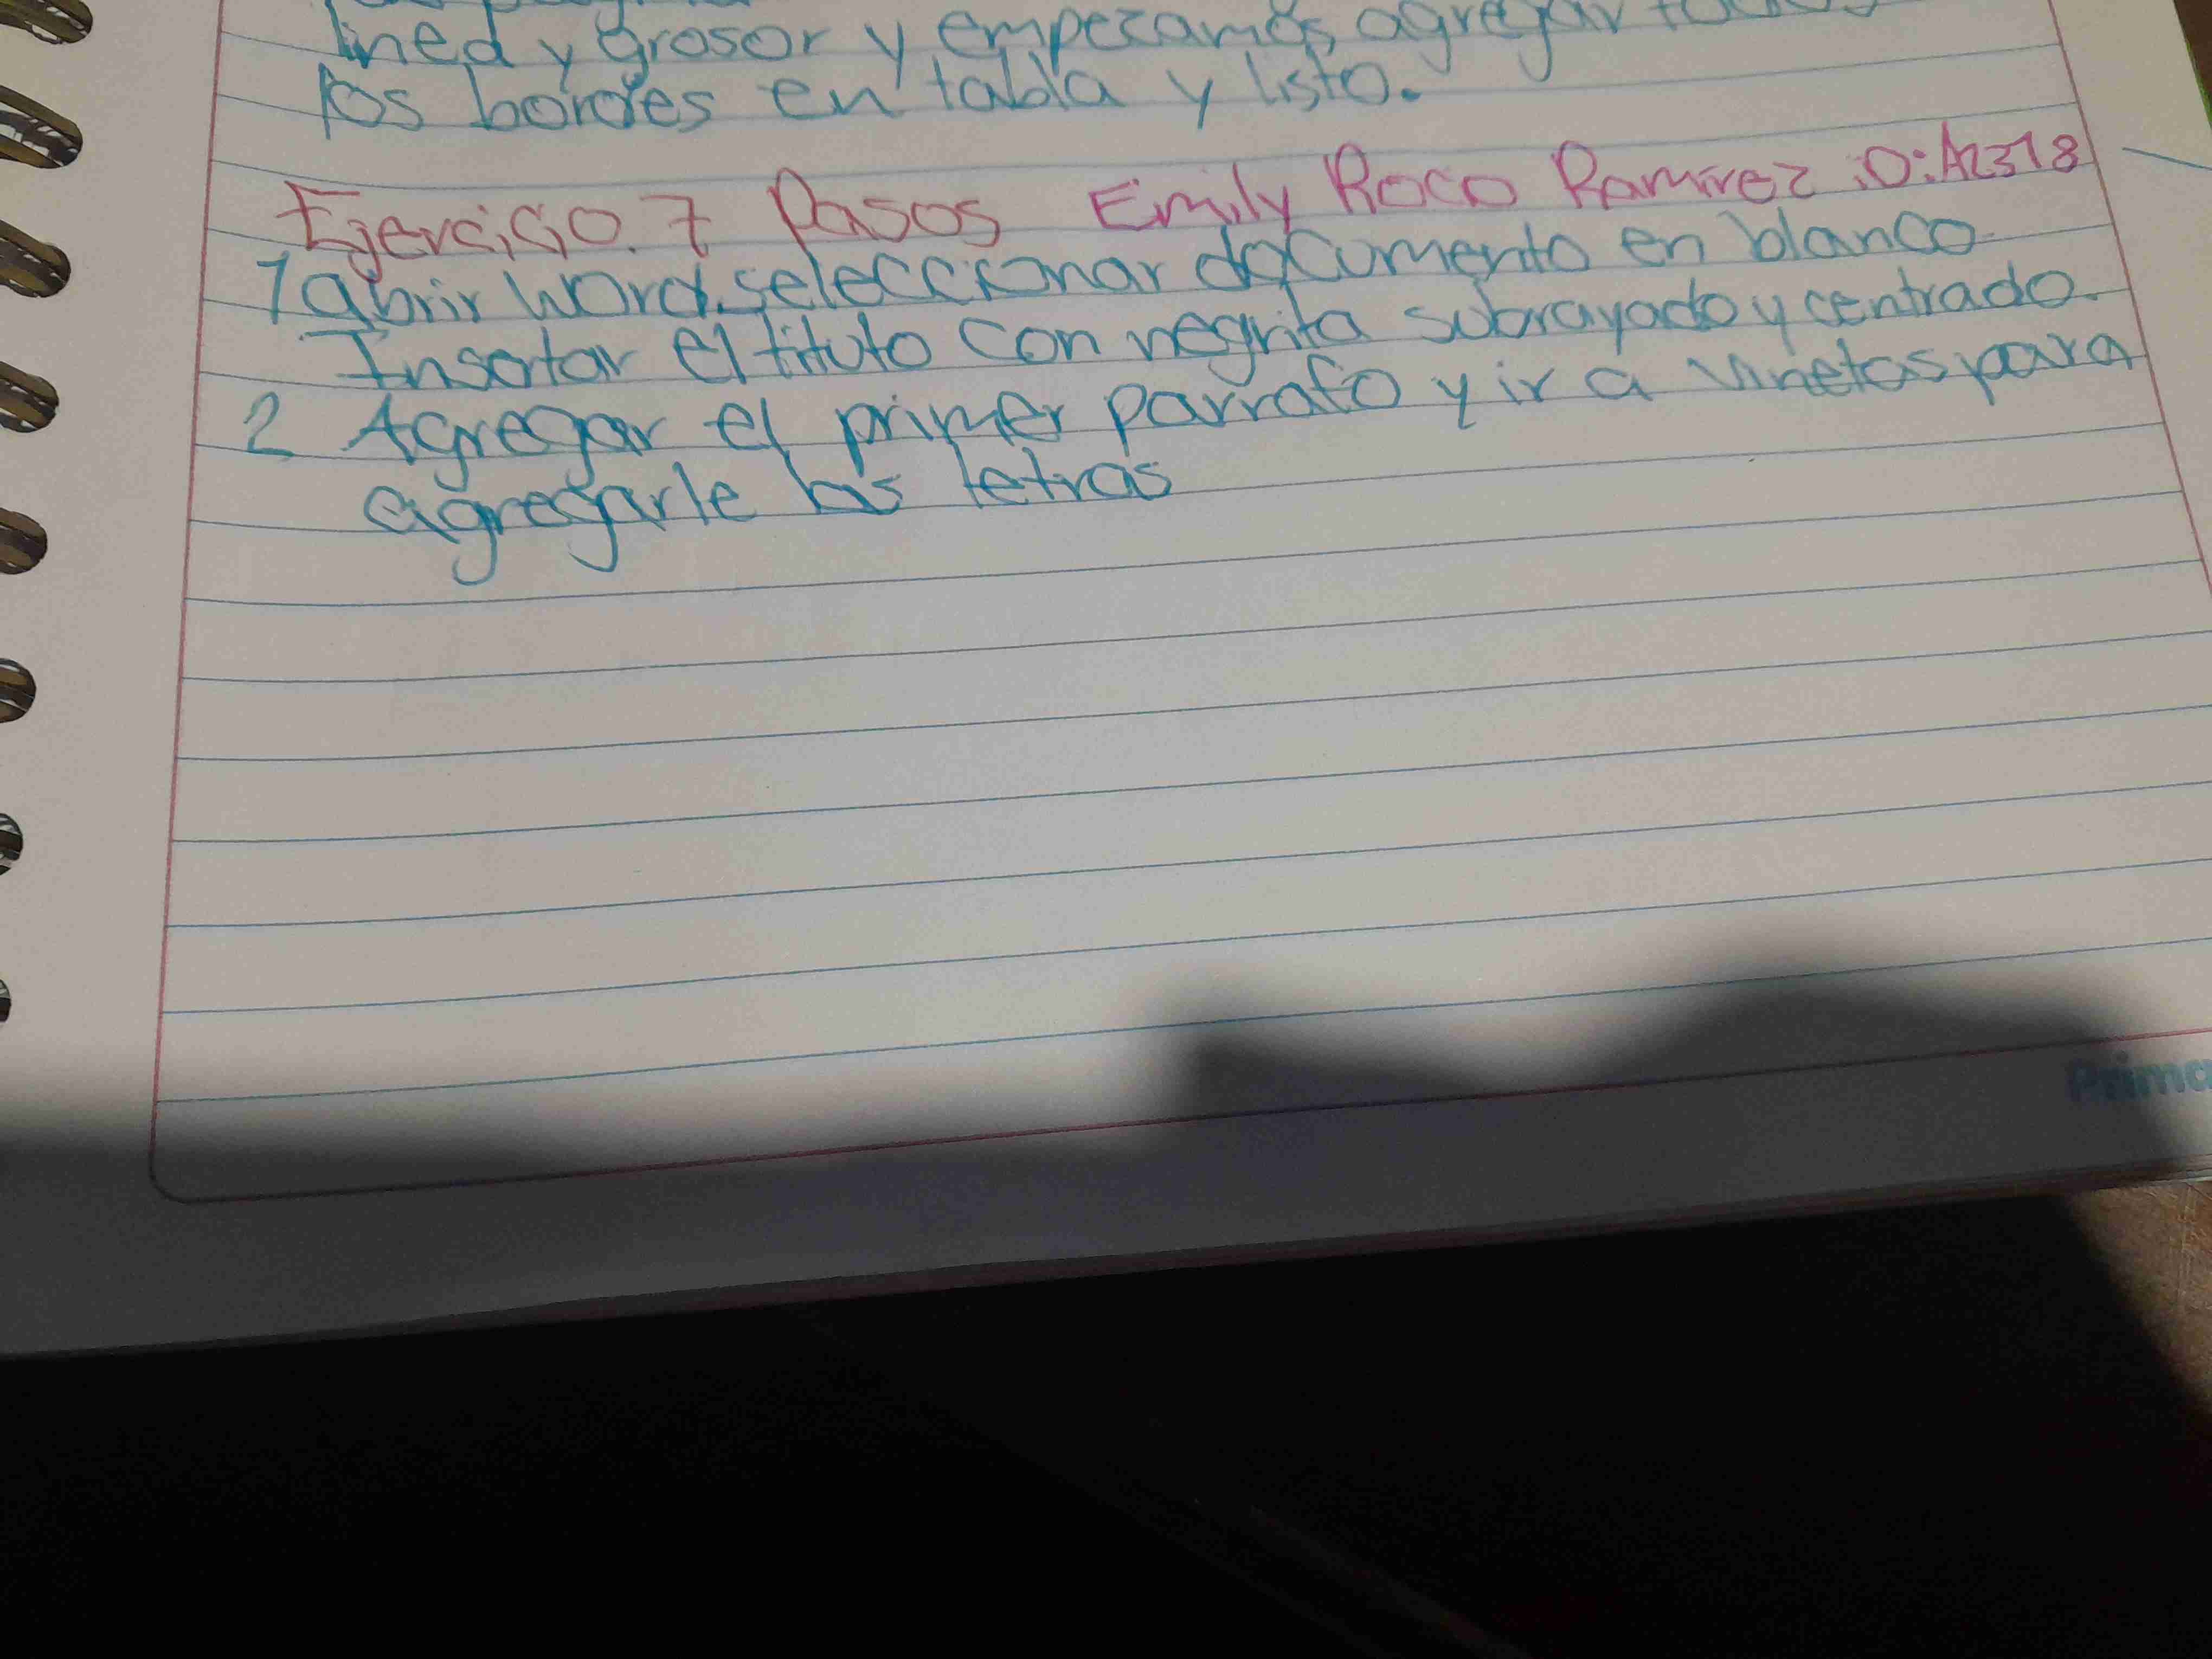 lined y grosor y empezamos agregar
los bordes en tabla y listo.
Ejercicio. 7 Pasos Emily Roco Ramirez iD: A2318
1 abrir word. seleccionar documento en blanco
Insertar el titulo con negrita subrayado y centrado.
2 Agregar el primer parrafo y ir a viñetas para
agregarle las letras
Prima